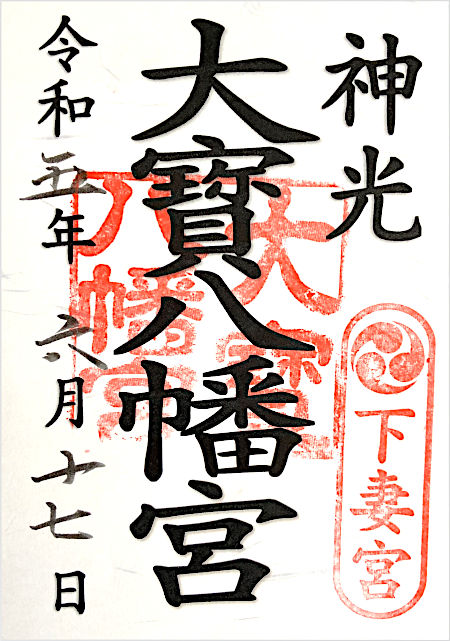 神光
下妻宮
大寶八幡宮
大寶
八幡宮
令和五年 六月十七日